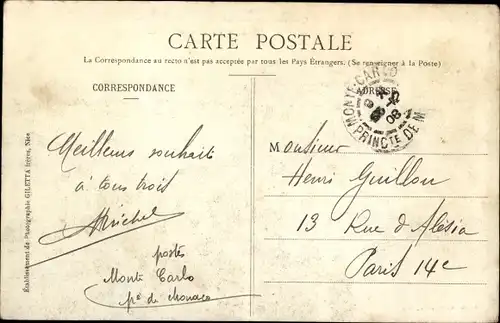 CARTE POSTALE
La Correspondance au recto n'est pas acceptée par tous les Pays Étrangers. (Se renseigner à la Poste)
CORRESPONDANCE
ADRESSE
MONTE-CARLO
08
PRINCTE DE M
Meilleurs souhaits
à tous trois
Michel
postés
Monte Carlo
pté de Monaco
Monsieur
Henri Guillou
13 Rue d'Alésia
Paris 14e
Établissement de Photographie GILETTA frères, Nice